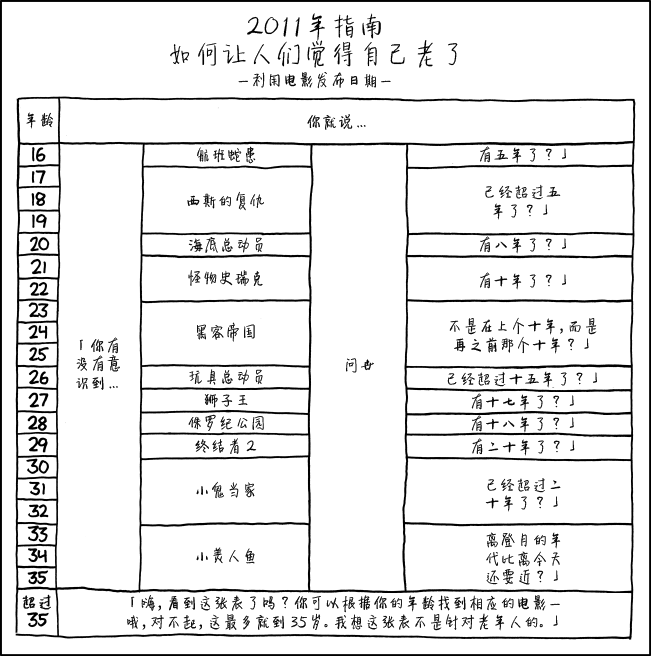 2011年指南
如何让人们觉得自己老了
—利用电影发布日期—
年龄
你就说…
16
航班蛇患
有五年了？」
17
18
19
西斯的复仇
已经超过五
年了？」
20
海底总动员
有八年了？」
21
22
怪物史瑞克
有十年了？」
23
24
25
「你有
没有意
识到…
黑客帝国
问世
不是在上个十年，而是
再之前那个十年？」
26
玩具总动员
已经超过十五年了？」
27
狮子王
有十七年了？」
28
侏罗纪公园
有十八年了？」
29
终结者2
有二十年了？」
30
31
32
小鬼当家
已经超过二
十年了？」
33
34
35
小美人鱼
离登月的年
代比离今天
还要近？」
超过
35
「嗨，看到这张表了吗？你可以根据你的年龄找到相应的电影—
哦，对不起，这最多就到35岁。我想这张表不是针对老年人的。」